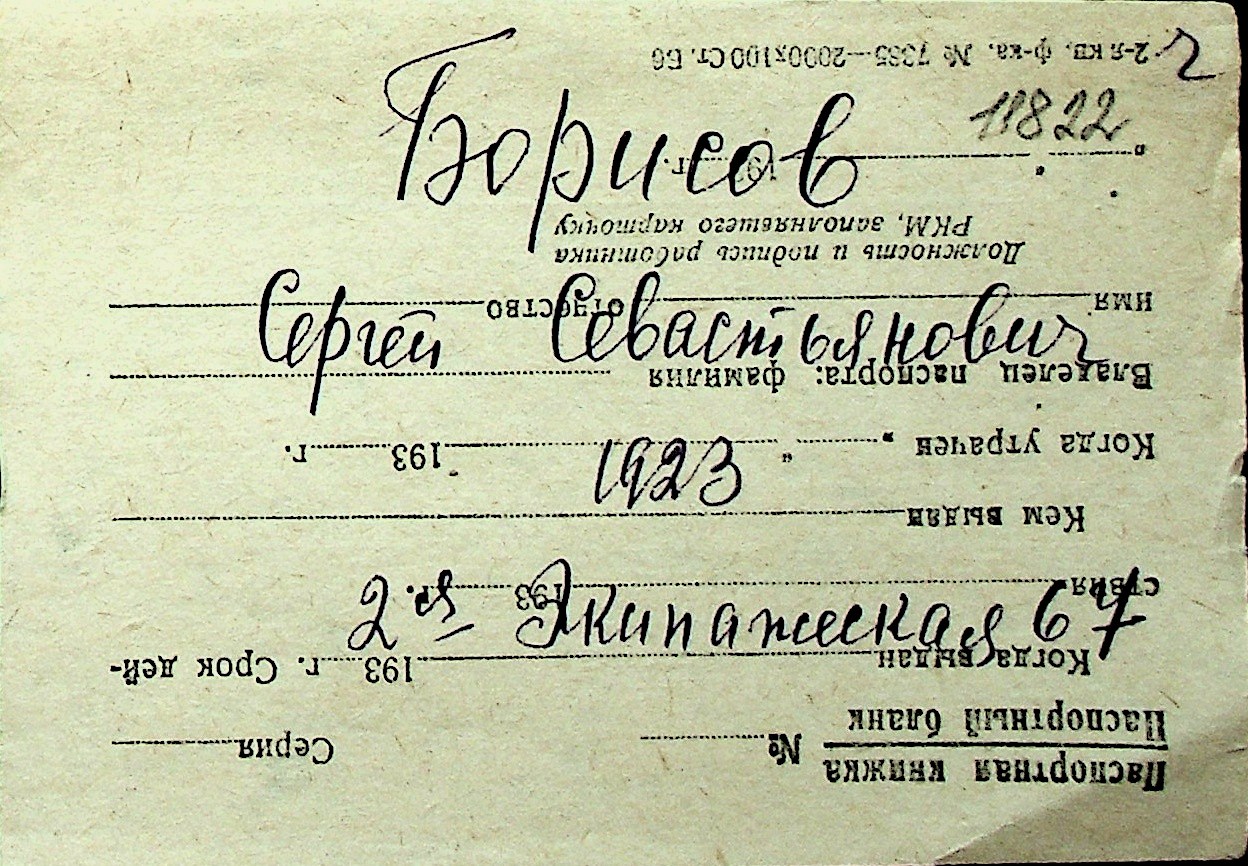 ч
11822
Борисов
Сергей Севастьянович
1923
2ая Экипажеская 67
Паспортная книжка
Паспортный бланк
№ Серия
Когда выдан 193 г. Срок дей-
ствия 193 г.
Кем выдан
Когда утрачен „ “ 193 г.
Владелец паспорта: фамилия
имя отчество
Должность и подпись работника
РКМ, заполнявшего карточку
„ “ 193 г.
2-я кв. ф-ка. № 7385—2000х100 Ст. Б6